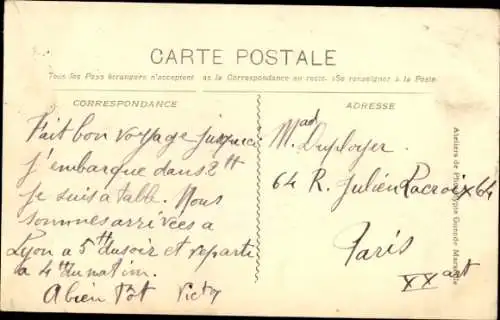 CARTE POSTALE
Tous les Pays étrangers n'acceptent pas la Correspondance au recto. (Se renseigner à la Poste
CORRESPONDANCE
Fait bon voyage jusqu'ici
j'embarque dans 2 H
je suis a table. Nous
sommes arrivées a
Lyon a 5 H du soir et reparti
a 4 H du matin.
A bien tôt Victor
ADRESSE
Mad Duployer
64 R. Julien Lacroix 64
Paris
XX art
Ateliers de Phototypie Marseille